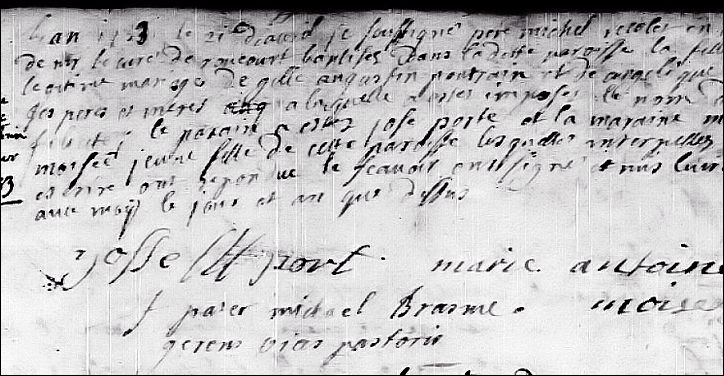 Lan 1723 le 21 d'avril je soussigné pere michel recolet en
de mr le curé de roucourt baptises dans laditte paroisse la fille
legitime mariage de gille augustin pontrain et de angelique
ses peres et meres a laquelle a estes imposes le nom d
le parain a estez jose porte et la maraine m
moiseet jeune fille de cette paroisse lesquelles interpelles
escrire ont repondue le scavoir ont signé et mis leur
avec moÿ le jour et an que dessus
josse port marie antoine
f pater michael Brasme . moise
gerens vices pastoris